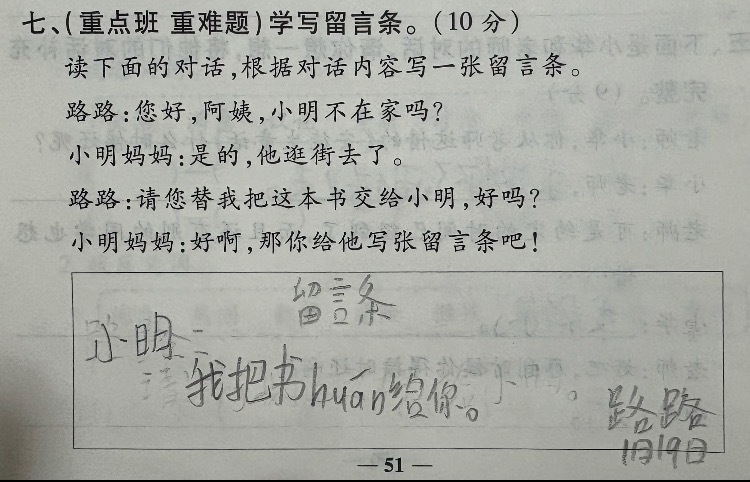 七、(重点班 重难题)学写留言条。(10 分)
读下面的对话,根据对话内容写一张留言条。
路路:您好,阿姨,小明不在家吗?
小明妈妈:是的,他逛街去了。
路路:请您替我把这本书交给小明,好吗?
小明妈妈:好啊,那你给他写张留言条吧!
留言条
小明:
我把书huán给你。
路路
1月19日
— 51 —